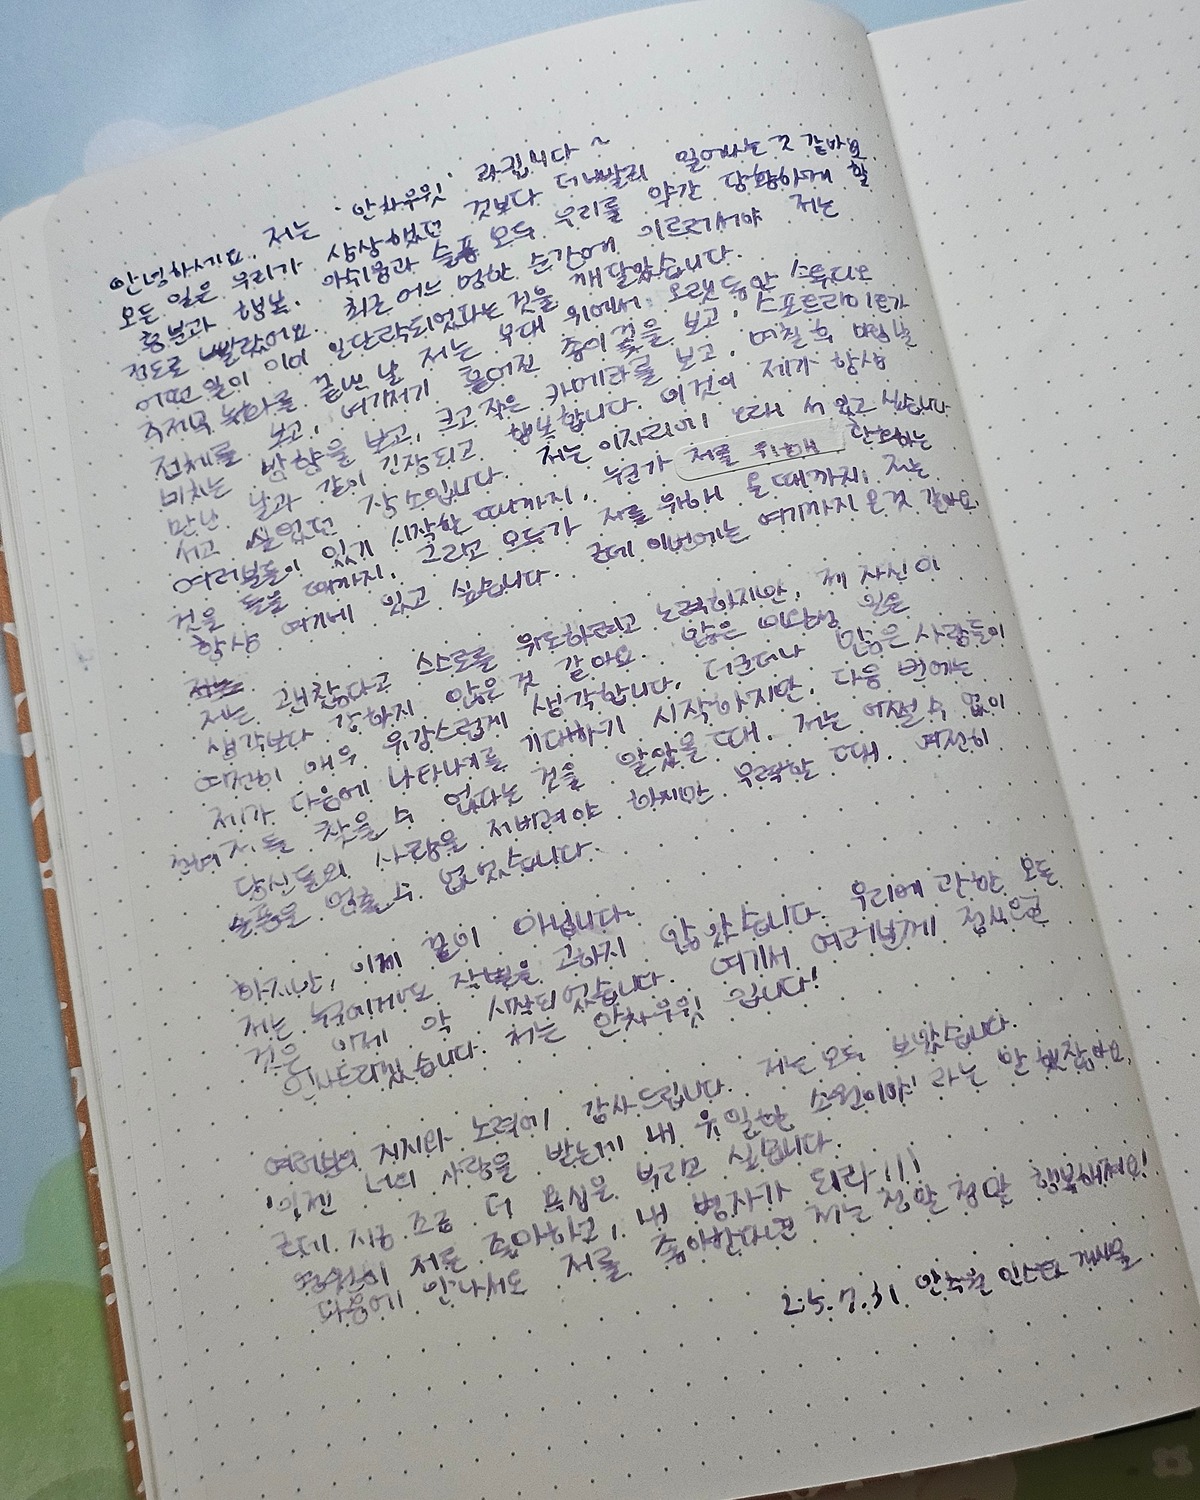 안녕하세요. 저는 '안차우윗' 라킵니다~
모든 일은 우리가 상상했던 것보다 더 빨리 일어나는 것 같아요
흥분과 행복. 아쉬움과 슬픔 모두 우리를 약간 당황하게 할
정도로 빨랐어요. 최근 어느 멍한 순간에 이르러서야 저는
어떤 일이 이미 일단락되었다는 것을 깨달았습니다.
녹화를 끝낸 날 저는 무대 위에서 오랫동안 스튜디오
전체를 보고, 여기저기 흩어진 종이꽃을 보고, 스포트라이트가
비치는 방향을 보고, 크고 작은 카메라를 보고, 며칠 후
만난 날과 같이 긴장되고 행복합니다. 이것이 제가 항상
서고 싶었던 장소입니다. 저는 이자리에 오래 서 있고 싶습니다
여러분들이 있기 시작한 때까지, 누군가 저를 위해 환호하는
것을 들을 때까지, 그리고 모두가 저를 위해서 올 때까지, 저는
항상 여기에 있고 싶습니다. 근데 이번에는 여기까지 온 것 같아요
저는 괜찮다고 스스로를 위로하려고 노력하지만, 제 자신이
생각보다 강하지 않은 것 같아요. 않은 일을
여전히 매우 유감스럽게 생각합니다. 더군다나 많은 사람들이
제가 다음에 나타나기를 기대하기 시작하지만, 다음 번에는
저를 찾을 수 없다는 것을 알았을 때, 저는 어쩔 수 없이
당신들의 사랑을 저버려야 하지만 무력할 때, 여전히
슬픔을 멈출 수 없었습니다.
하지만, 이게 끝이 아닙니다.
저는 누구에게도 작별을 고하지 않았습니다. 우리에 관한 모든
것은 이제 막 시작되었습니다. 여기서 여러분께 정식으로
인사드리겠습니다. 저는 안차우윗 입니다!
여러분의 지지와 노력에 감사드립니다. 저는 모두 보았습니다.
'이젠 너의 사랑을 받는게 내 유일한 소원이야' 라는 말 했잖아요,
근데 지금 조금 더 욕심을 부리고 싶습니다.
영원히 저를 좋아하고, 내 병사가 되라!!!
다음에 만나서도 저를 좋아한다면 저는 정말 정말 행복해져요!
25.7.31 인스타 게시물